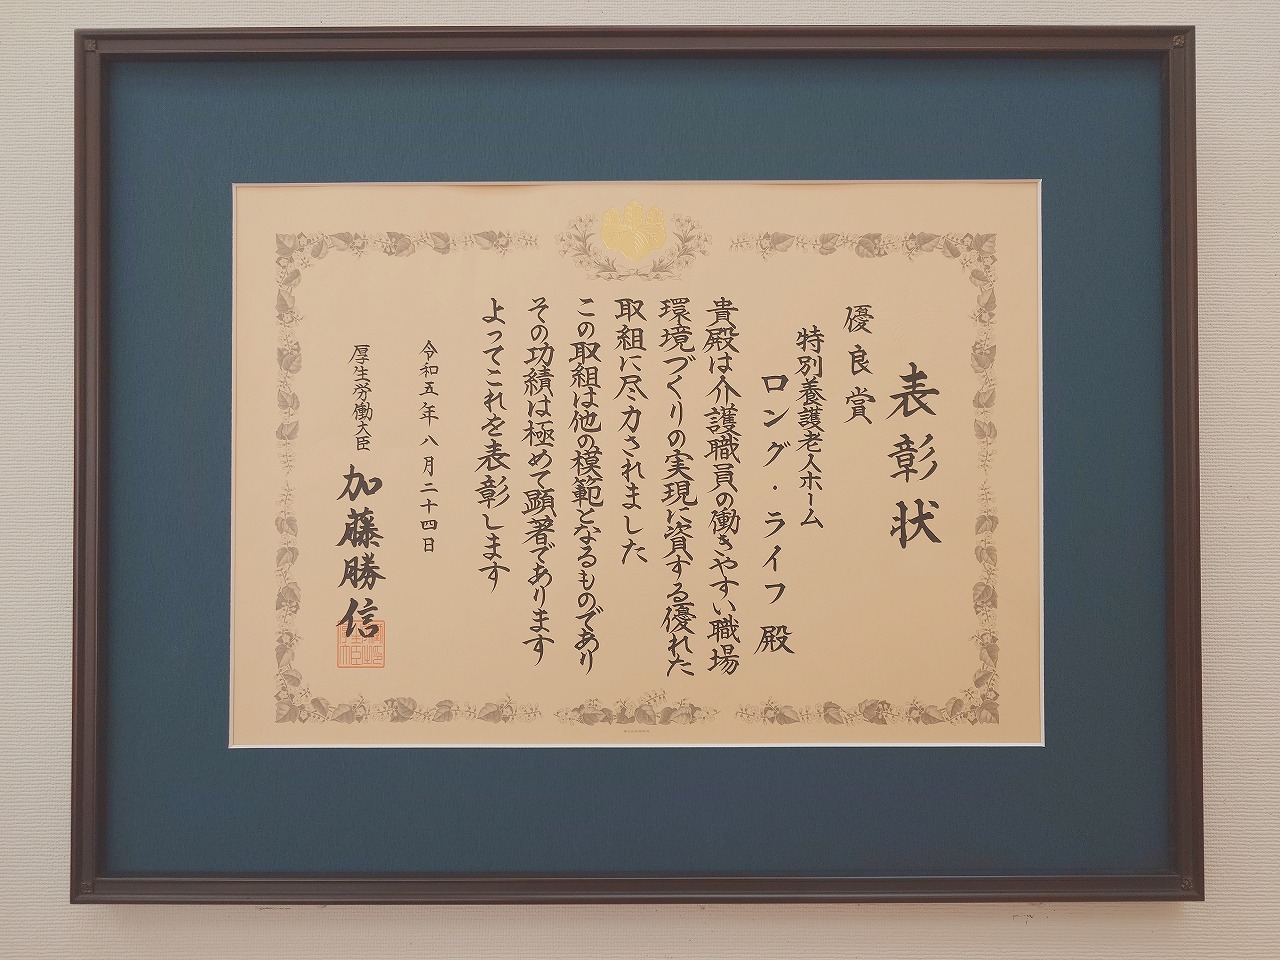 表彰状
優良賞
特別養護老人ホーム
ロング・ライフ 殿
貴殿は介護職員の働きやすい職場
環境づくりの実現に資する優れた
取組に尽力されました
この取組は他の模範となるものであり
その功績は極めて顕著であります
よってこれを表彰します
令和五年八月二十四日
厚生労働大臣 加藤勝信